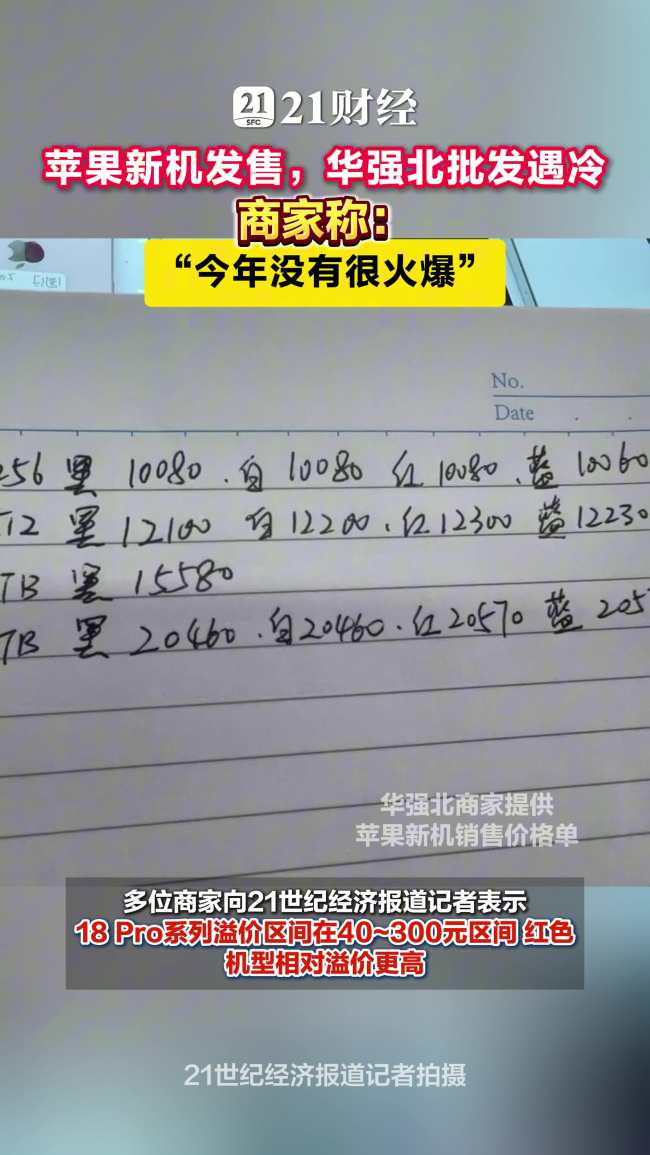 21
SFC
21财经
苹果新机发售，华强北批发遇冷
商家称：
“今年没有很火爆”
No.
Date
256 黑 10080. 白 10080 红 10080. 蓝 10060
512 黑 12100 白 12200. 红 12300 蓝 12230
TB 黑 15580
TB 黑 20460. 白 20460. 红 20570 蓝 205
华强北商家提供
苹果新机销售价格单
多位商家向21世纪经济报道记者表示
18 Pro系列溢价区间在40~300元区间 红色
机型相对溢价更高
21世纪经济报道记者拍摄